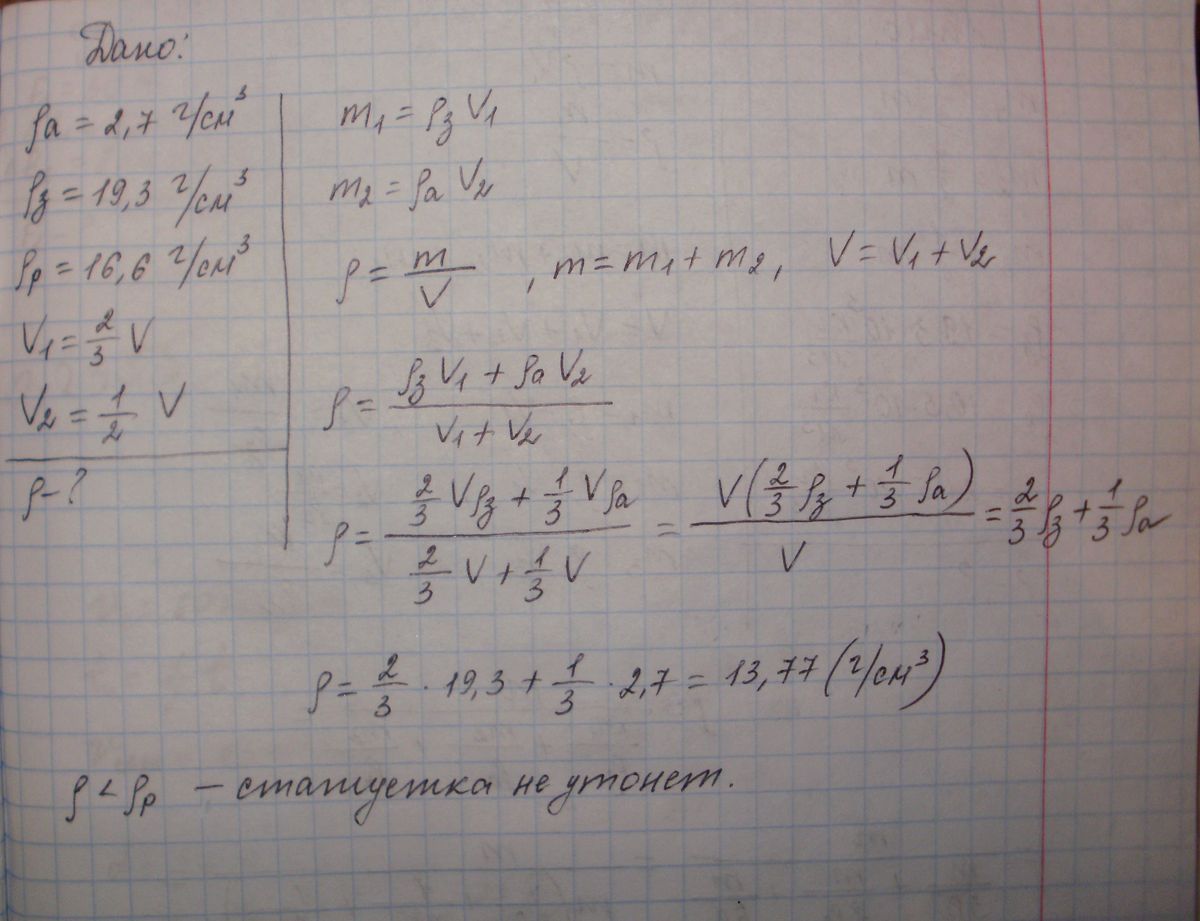 Дано:
ρа = 2,7 г/см³
ρз = 19,3 г/см³
ρр = 16,6 г/см³
V₁ = 2/3 V
V₂ = 1/2 V
ρ - ?
m₁ = ρз V₁
m₂ = ρа V₂
ρ = m/V , m = m₁ + m₂, V = V₁ + V₂
ρ = (ρз V₁ + ρа V₂)/(V₁ + V₂)
ρ = (2/3 Vρз + 1/3 Vρа)/(2/3 V + 1/3 V) = V(2/3 ρз + 1/3 ρа)/V = 2/3 ρз + 1/3 ρа
ρ = 2/3 · 19,3 + 1/3 · 2,7 = 13,77 (г/см³)
ρ < ρр – статуетка не утонет.